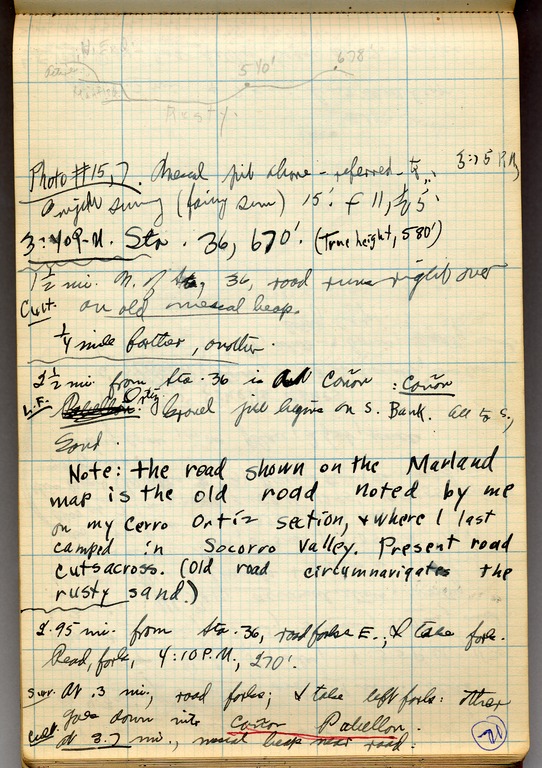 540'
678'
Rusty
Photo #15, 7. mescal pit above - referred - to, 3:25 P.M.
(facing sun) 15'. f 11, 1/25
3:40 P.M. Sta. 36, 670'. (True height, 580')
1 1/2 mi. N. of Sta. 36, road runs right over
Cult. an old mescal heap.
1/4 mile farther, another.
2 1/2 mi. from Sta. 36 is Cañon : Cañon
L.F. Ortiz. Gravel begins on S. Bank. All to S.,
Sand.
Note: the road shown on the Marland
map is the old road noted by me
on my Cerro Ortiz section, & where I last
camped in Socorro Valley. Present road
cuts across. (Old road circumnavigates the
rusty sand.)
2.95 mi. from Sta. 36, road forks E.; I take fork.
Road, fork, 4:10 P.M., 270'.
Sur. At .3 mi., road forks; I take left fork: other
goes down into Cañon Pabellon.
Cult. At 3.7 mi., mescal heap near road.